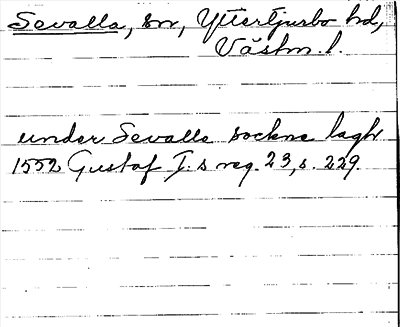 Sevalla, sn, Yttertjurbo hd,
Västm. l.
under Sevalla sockns lagh
1552 Gustaf I:s reg. 23, s. 229.